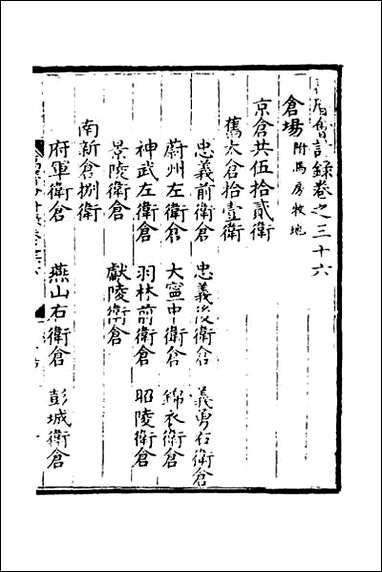 會計錄卷之三十六
倉場 附馬房牧地
京倉共伍拾貳衛
舊太倉拾壹衛
忠義前衛倉 忠義後衛倉 義勇右衛倉
蔚州左衛倉 大寧中衛倉 錦衣衛倉
神武左衛倉 羽林前衛倉 昭陵衛倉
景陵衛倉 獻陵衛倉
南新倉捌衛
府軍衛倉 燕山右衛倉 彭城衛倉